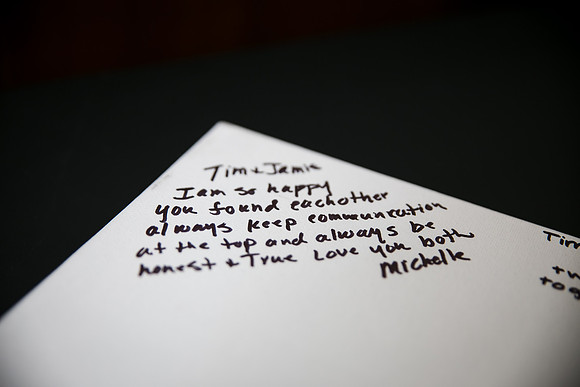 Tim + Jamie
I am so happy
you found eachother
always keep communication
at the top and always be
honest + True Love you both
Michelle